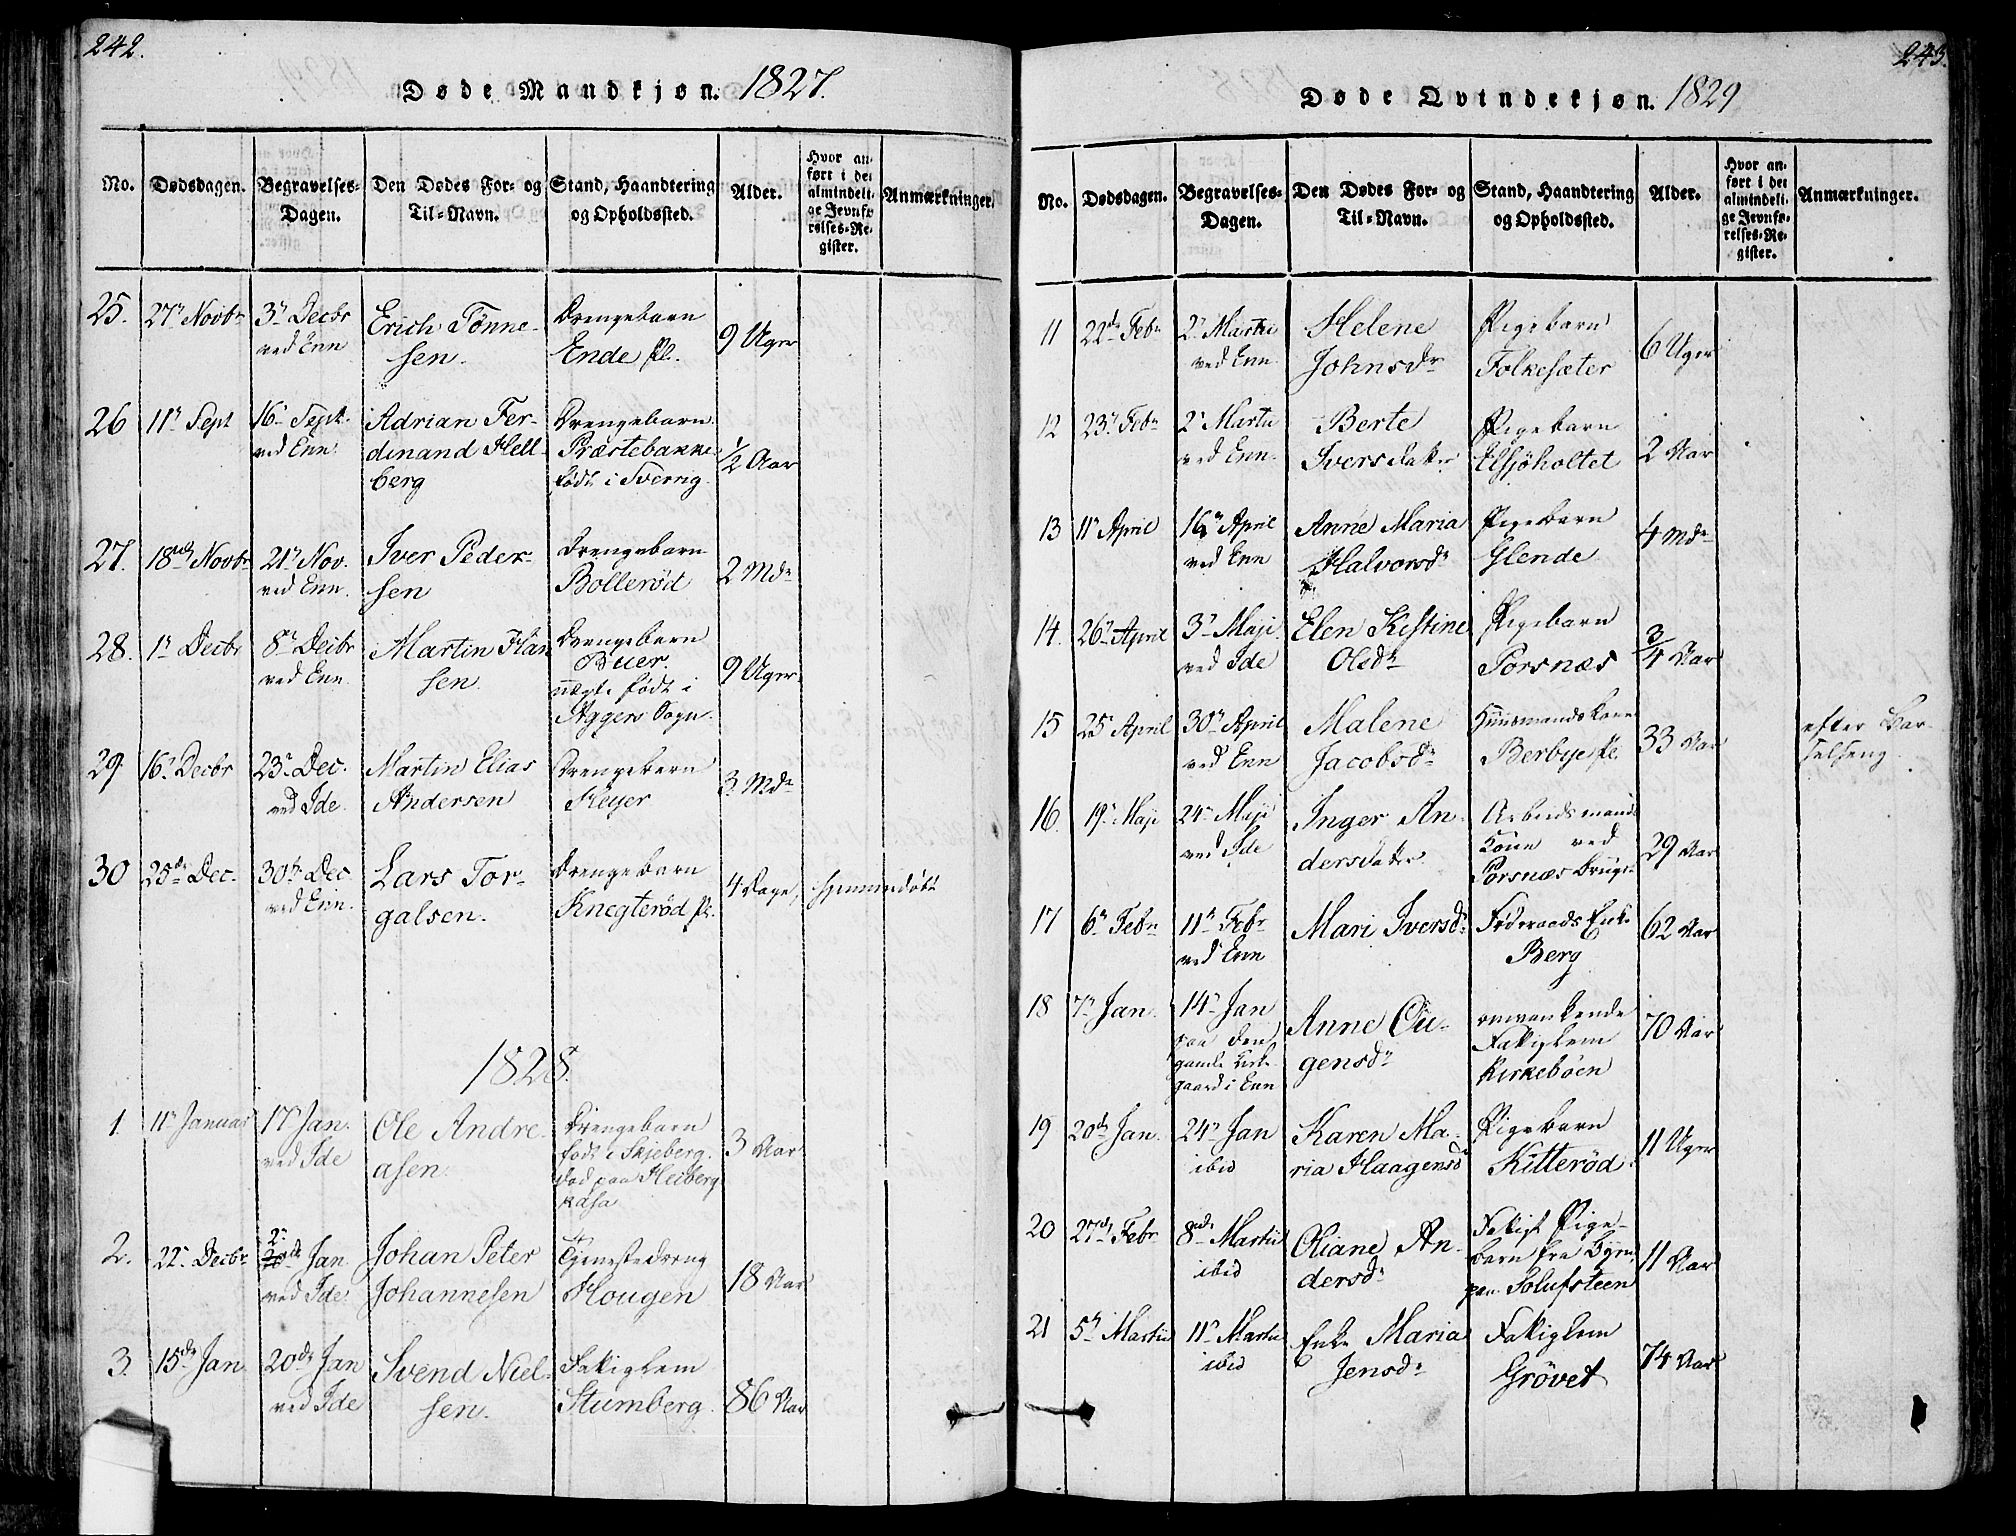 242.
Døde Mandkjøn. 1827.
No.
Dødsdagen.
Begravelses-
Dagen.
Den Dødes For- og
Til-Navn.
Stand, Haandtering
og Opholdssted.
Alder.
Hvor an-
ført i det
almindeli-
ge Jevnfø-
relses-Re-
gister.
Anmærkninger.
25.
27r Novbr
3r Decbr
ved Enn
Erich Tønne-
sen.
Drengebarn
Ende Pl.
9 Uger
26
11r Sept
16r Sept.
ved Enn.
Adrian Fer-
dinand Hell-
berg
Drengebarn
Præstebakke
født i Sverrig.
1/2 Aar
27.
18de Novbr
21r Nov.
ved Enn.
Iver Peder-
sen
Drengebarn
Bollerød
2 Mdr
28.
1r Decbr
8r Decbr
ved Enn.
Martin Han
sen.
Drengebarn
Buer.
uægte født i
Aggers Sogn.
9 Uger
29
16r Decbr
23r Dec.
ved Ide.
Martin Elias
Andersen
Drengebarn
Keyer
3 Mdr
30
25de Dec.
30te Dec
ved Enn.
Lars Tor-
galsen.
Drengebarn
Knegterød Pl.
4 Dage,
hjemmedøbt
1828.
1.
11r Januar
17r Jan.
ved Ide
Ole Andre-
asen.
Drengebarn
født i Skjeberg.
død paa Heiberg
kasa
3 Aar
2.
22r Decbr
2r
Jan
ved Ide.
Johan Peter
Johannesen
Tjenestedreng
Hougen
18 Aar
3.
15de Jan
20de Jan
ved Ide
Svend Niel-
sen.
Fattiglem
Stumberg.
86 Aar
243.
Døde Qvindekjøn. 1829
No.
Dødsdagen.
Begravelses-
Dagen.
Den Dødes For- og
Til-Navn.
Stand, Haandtering
og Opholdssted.
Alder.
Hvor an-
ført i det
almindeli-
ge Jevnfø-
relses-Re-
gister.
Anmærkninger.
11
22de Febr
2r Martii
ved Enn.
Helene
Johnsdr
Pigebarn
Folkesæter
6 Uger
12
23r Febr
2r Martii
ved Enn.
Berte
Iversdatr
Pigebarn
Elsjöholtet
2 Aar
13
11r April
16r April
ved Enn
Anne Maria
Halvorsdr
Pigebarn
Glende
4 Mdr
14.
26r April
3r Maji
ved Ide
Elen Kistine
Olsdr
Pigebarn
Porsnæs
3/4 Aar
15
25 April
30r April
ved Enn
Malene
Jacobsdr
Huusmandskone
Berbye Pl.
33 Aar
efter Bar-
selseng.
16.
19r Maji
24r Maji
ved Ide
Inger An-
dersdatr
Arbeidsmands
Kone ved
Porsnæs Brug
29 Aar
17
6r Febr
11r Febr
ved Enn
Mari Iversdr
Føderaads Enke
Berg
62 Aar
18
7r Jan.
14r Jan
paa den
gamle Kirke
gaard i Enn
Anne Ou-
gensdr
omvankende
Fattiglem
Kirkebøen
70 Aar
19
20de Jan.
24r Jan
ibid
Karen Ma-
ria Haagensdr
Pigebarn
Kitterød.
11 Uger
20
27de Febr
8de Martii
ibid
Oliane An-
dersdr
Fattigt Pige-
barn fra Byen
paa Solufsteen
11 Aar
21
5r Martii
11r Martii
ibid
Enke Maria
Jensdr
Fattiglem
Grøvet
74 Aar